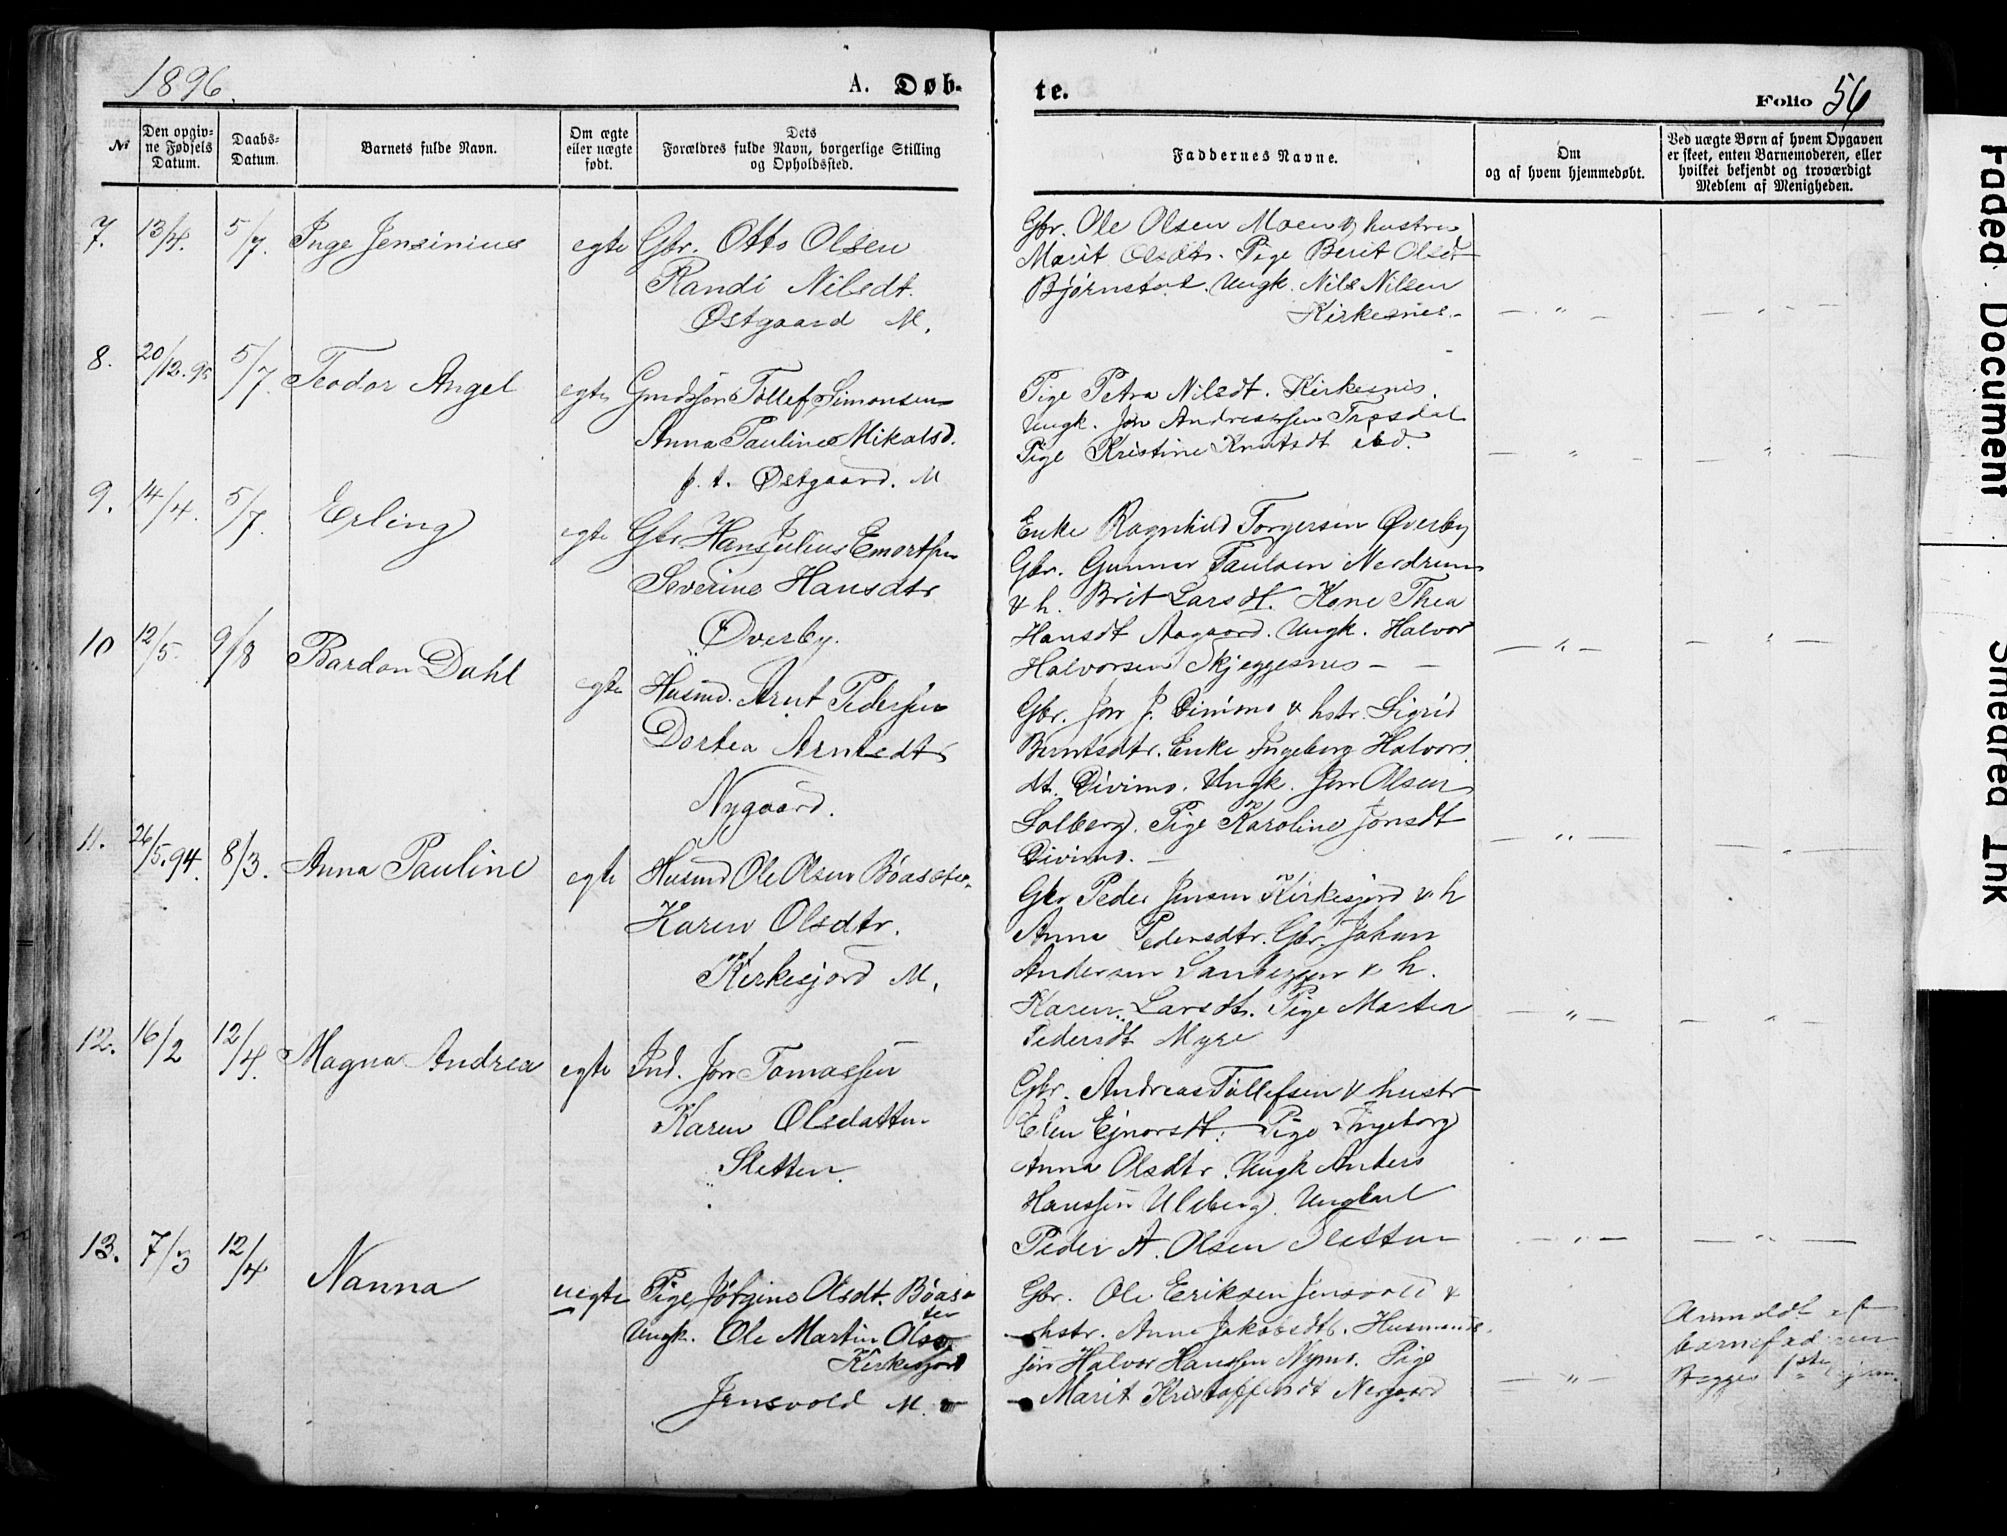 1896.
A. Døb-
te.
Folio 56
№
Den opgiv-
ne Fødsels
Datum.
Daabs-
Datum.
Barnets fulde Navn.
Om ægte
eller uægte
født.
Dets
Forældres fulde Navn, borgerlige Stilling
og Opholdssted.
Faddernes Navne.
Om
og af hvem hjemmedøbt.
Ved uægte Børn af hvem Opgaven
er skeet, enten Barnemoderen, eller
hvilket bekjendt og troværdigt
Medlem af Menigheden.
7. 13/4. 5/7. Inge Jensinius egte Gbr. Otto Olsen
Randi Nilsdt.
Østgaard M.
Gbr. Ole Olsen Moen & hustru
Marit Olsdtr. Pige Berit Olsdt
Bjørnstad. Ungk. Nils Nilsen
Kirkesnes.
8. 20/12.95 5/7. Teodor Angel egte Tollef Simonsen
Anna Pauline Mikalsd.
p. t. Østgaard. M
Pige Petra Nilsdt. Kirkesnes.
Ungk. Jon Andreassen Træsdal
Pige Kristine Knutsdt ibd.
9. 14/4. 5/7. Erling egte Gbr. Hans Julius
Severine Hansdtr
Øverby.
Enke Ragnhild Torgersen Øverby
Gbr. Gunner Paulsen Nerdrum
& h. Brit Larsdt. Kone Thea
Hansdt Aagaard. Ungk. Halvor
Halvorsen Skjeggesnes
10 12/5. 9/8 Bardon Dahl egte Husmd. Arnt Pedersen
Dortea Arntsdtr
Nygaard.
Gbr. Jon J. Divimo & hstr. Sigrid
Berntsdtr. Enke Ingeborg Halvors
dt. Divimo. Ungk. Jon Olsen
Solberg. Pige Karoline Jonsdt
Divimo.
11. 26/5.94. 8/3. Anna Pauline egte Husmd Ole Olsen Bøasæter.
Karen Olsdtr.
Kirkesjord M.
Gbr Peder Jensen Kirkesjord & h
Anne Pedersdtr. Gbr. Johan
Andersen & h.
Karen Larsdt. Pige Martea
Pedersdt Myre
12. 16/2 12/4. Magna Andrea egte Ind. Jon Tomassen
Karen Olsdatter
Sletten.
Gbr. Andreas Tollefsen & hustr
Elen Ejnarsdt. Pige Ingeborg
Anna Olsdtr. Ungk Anders
Hanssen Ulvberg. Ungkarl
Peder A. Olsen Sletten
13. 7/3 12/4 Nanna uegte Pige Jørgine Olsdt. Bøasæ-
ter
Ungk. Ole Martin Olsen
Kirkesjord
Jensvold M.
Gbr. Ole Eriksen Jensvold &
hstr. Anne Jakobsdtr. Husmands
søn Halvor Hanssen Nymo. Pige
Marit Kristoffersdt Nergaard
Anmeldt af
barnefaderen
Begges 1ste
Faded Document
Smeared Ink